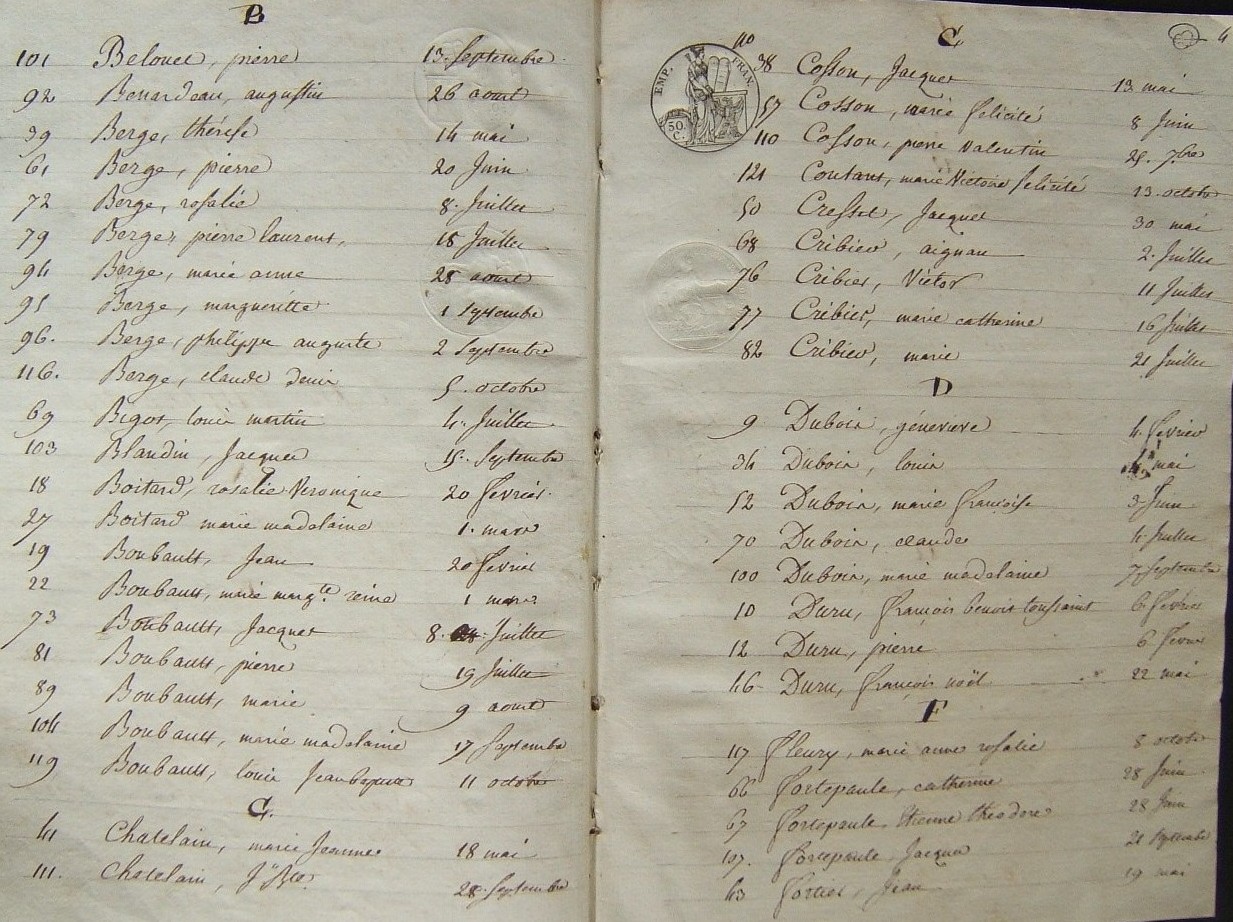 B
101 Belouet, pierre 13. Septembre
92 Benardeau, augustin 26 aout
39 Berge, thérése 14 mai
61 Berge, pierre 20 Juin
72 Berge, rosalie 8. Juillet
79 Berge, pierre laurent, 18 Juillet
94 Berge, marie anne 28 aout
95 Berge, margueritte 1 Septembre
96. Berge, philippe auguste 2 Septembre
116. Berge, claude denis 5. octobre
69 Bigot, louis martin 4. Juillet
103 Blandin, Jacques 15. Septembre
18 Boitard, rosalie Veronique 20 fevrier.
27 Boitard marie madelaine 1. mars
19 Boubault, Jean 20 fevrier
22 Boubault, marie marg.te reine 1 mars
73 Boubault, Jacques 8. Juillet
81 Boubault, pierre 19 Juillet
89 Boubault, marie 9 aout
104 Boubault, marie madelaine 17 Septembre
119 Boubault, louis Jean baptiste 11 octobre
C.
41 Chatelain, marie Jeanne 18 mai
111. Chatelain, J.n Bte. 28. Septembre
40 C. 4
EMP. FRAN.
50. C.
38 Cosson, Jacques 13 mai
57 Cosson, marie felicité 8 Juin
110 Cosson, pierre Valentin 25. 7bre
121 Coutant, marie Victoire felicité 13. octobre
50 Cressot, Jacques 30 mai
68 Cribier, aignan 2. Juillet
76 Cribier, Victor 11 Juillet
77 Cribier, marie catherine 16 Juillet
82 Cribier, marie 21 Juillet
D
9 Dubois, génevieve 4. fevrier
34 Dubois, louis mai
52 Dubois, marie françoise 3 Juin
70 Dubois, claude 4 Juillet
100 Dubois, marie madelaine 7 Septembre
10 Duru, françois benoit toussaint 6 fevrier
12 Duru, pierre 6 fevrier
46 Duru, françois noël 22 mai
F
117 fleury, marie anne rosalie 8 octobre
66 fortepaule, catherine 28 Juin
67 fortepaule, Etienne théodore 28 Juin
107. fortepaule, Jacques 21 Septembre
43 fortier, Jean 19 mai